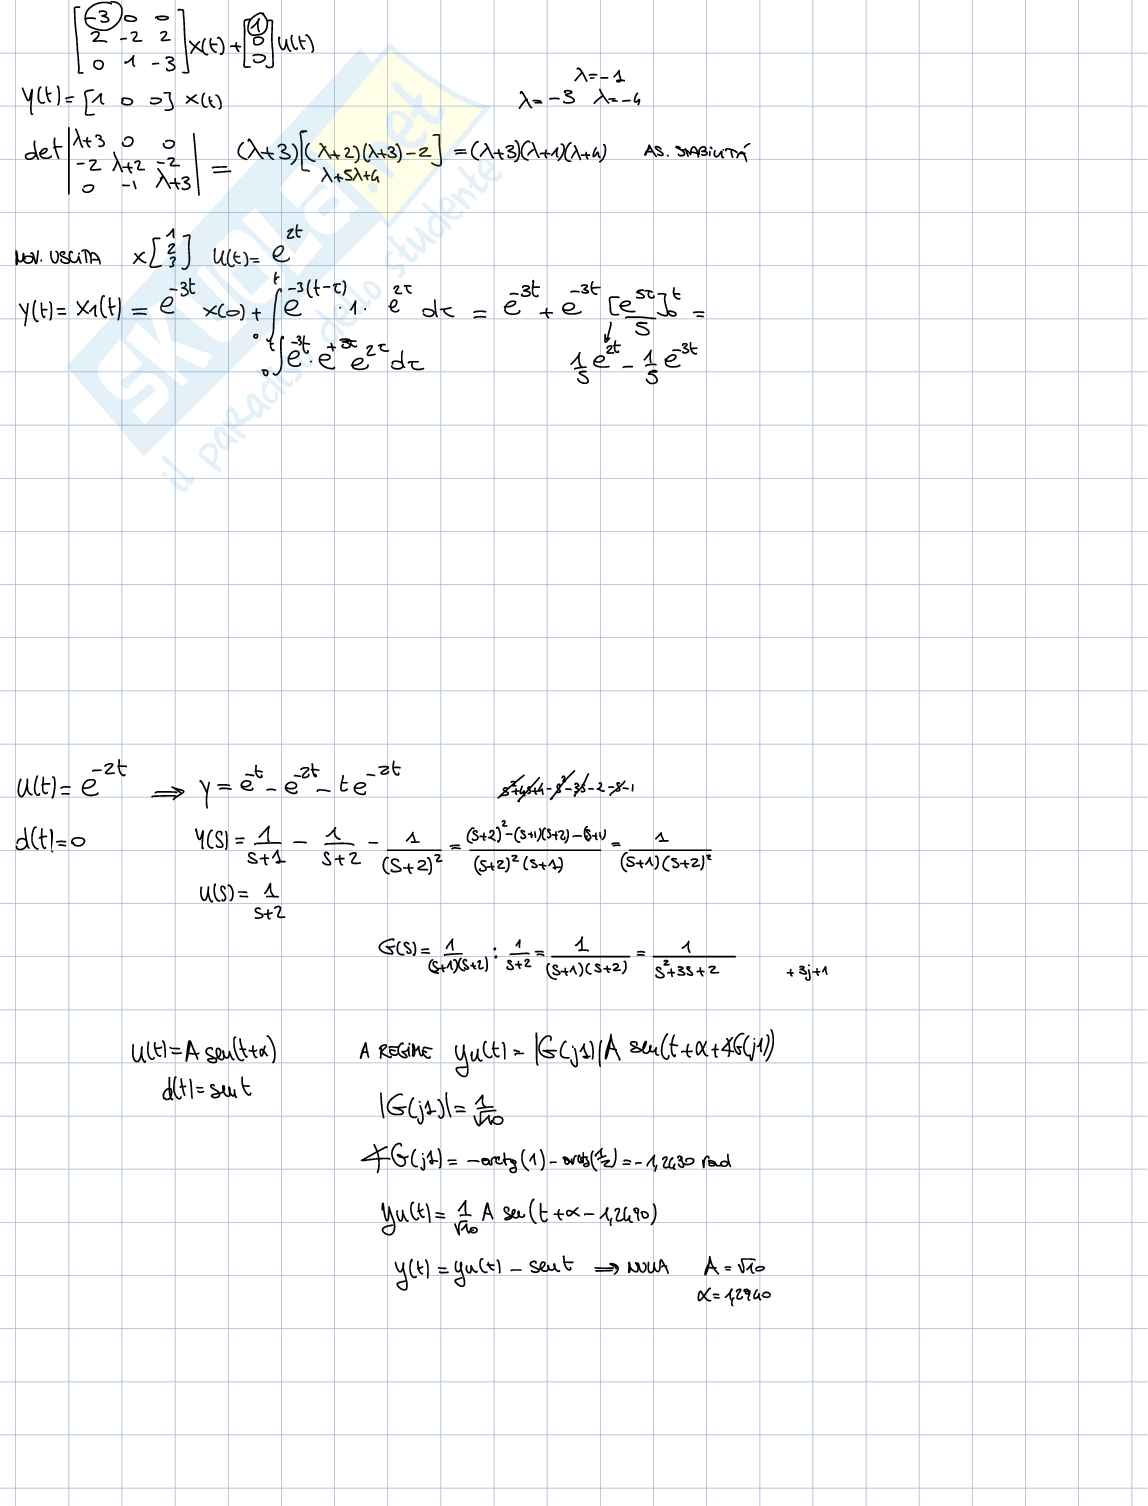 [-3 0 0
2 -2 2
0 1 -3] x(t) + [1
0
0] u(t)
y(t) = [1 0 0] x(t)
λ=-1
λ=-3 λ=-4
det |λ+3 0 0
-2 λ+2 -2
0 -1 λ+3| = (λ+3)[(λ+2)(λ+3)-2] = (λ+3)(λ+1)(λ+4) AS. STABILITÁ
λ+5λ+4
MOV. USCITA x[1
2
3] u(t) = e^2t
y(t) = x1(t) = e^-3t x(0) + ∫0^t e^-3(t-τ) · 1 · e^2τ dτ = e^-3t + e^-3t [e^5τ/5]0^t =
∫0^t e^-3t · e^+3τ e^2τ dτ
1/5 e^2t - 1/5 e^-3t
SKUOLA.net
il paradiso dello studente
u(t) = e^-2t ⟹ y = e^-t - e^-2t - te^-2t
s²+4s+4-s²-3s-2-s-1
d(t)=0
Y(s) = 1/(s+1) - 1/(s+2) - 1/(s+2)² = ((s+2)²-(s+1)(s+2)-(s+1))/((s+2)²(s+1)) = 1/((s+1)(s+2)²)
U(s) = 1/(s+2)
G(s) = 1/((s+1)(s+2)²) : 1/(s+2) = 1/((s+1)(s+2)) = 1/(s²+3s+2)
+3j+1
u(t) = A sen(t+α)
A REGIME yu(t) = |G(j1)| A sen(t+α+∡G(j1))
d(t) = sen t
|G(j1)| = 1/√10
∡G(j1) = -arctg(1) - arctg(1/2) = -1,2490 rad
yu(t) = 1/√10 A sen(t+α-1,2490)
y(t) = yu(t) - sen t ⟹ NULLA A = √10
α = 1,2940